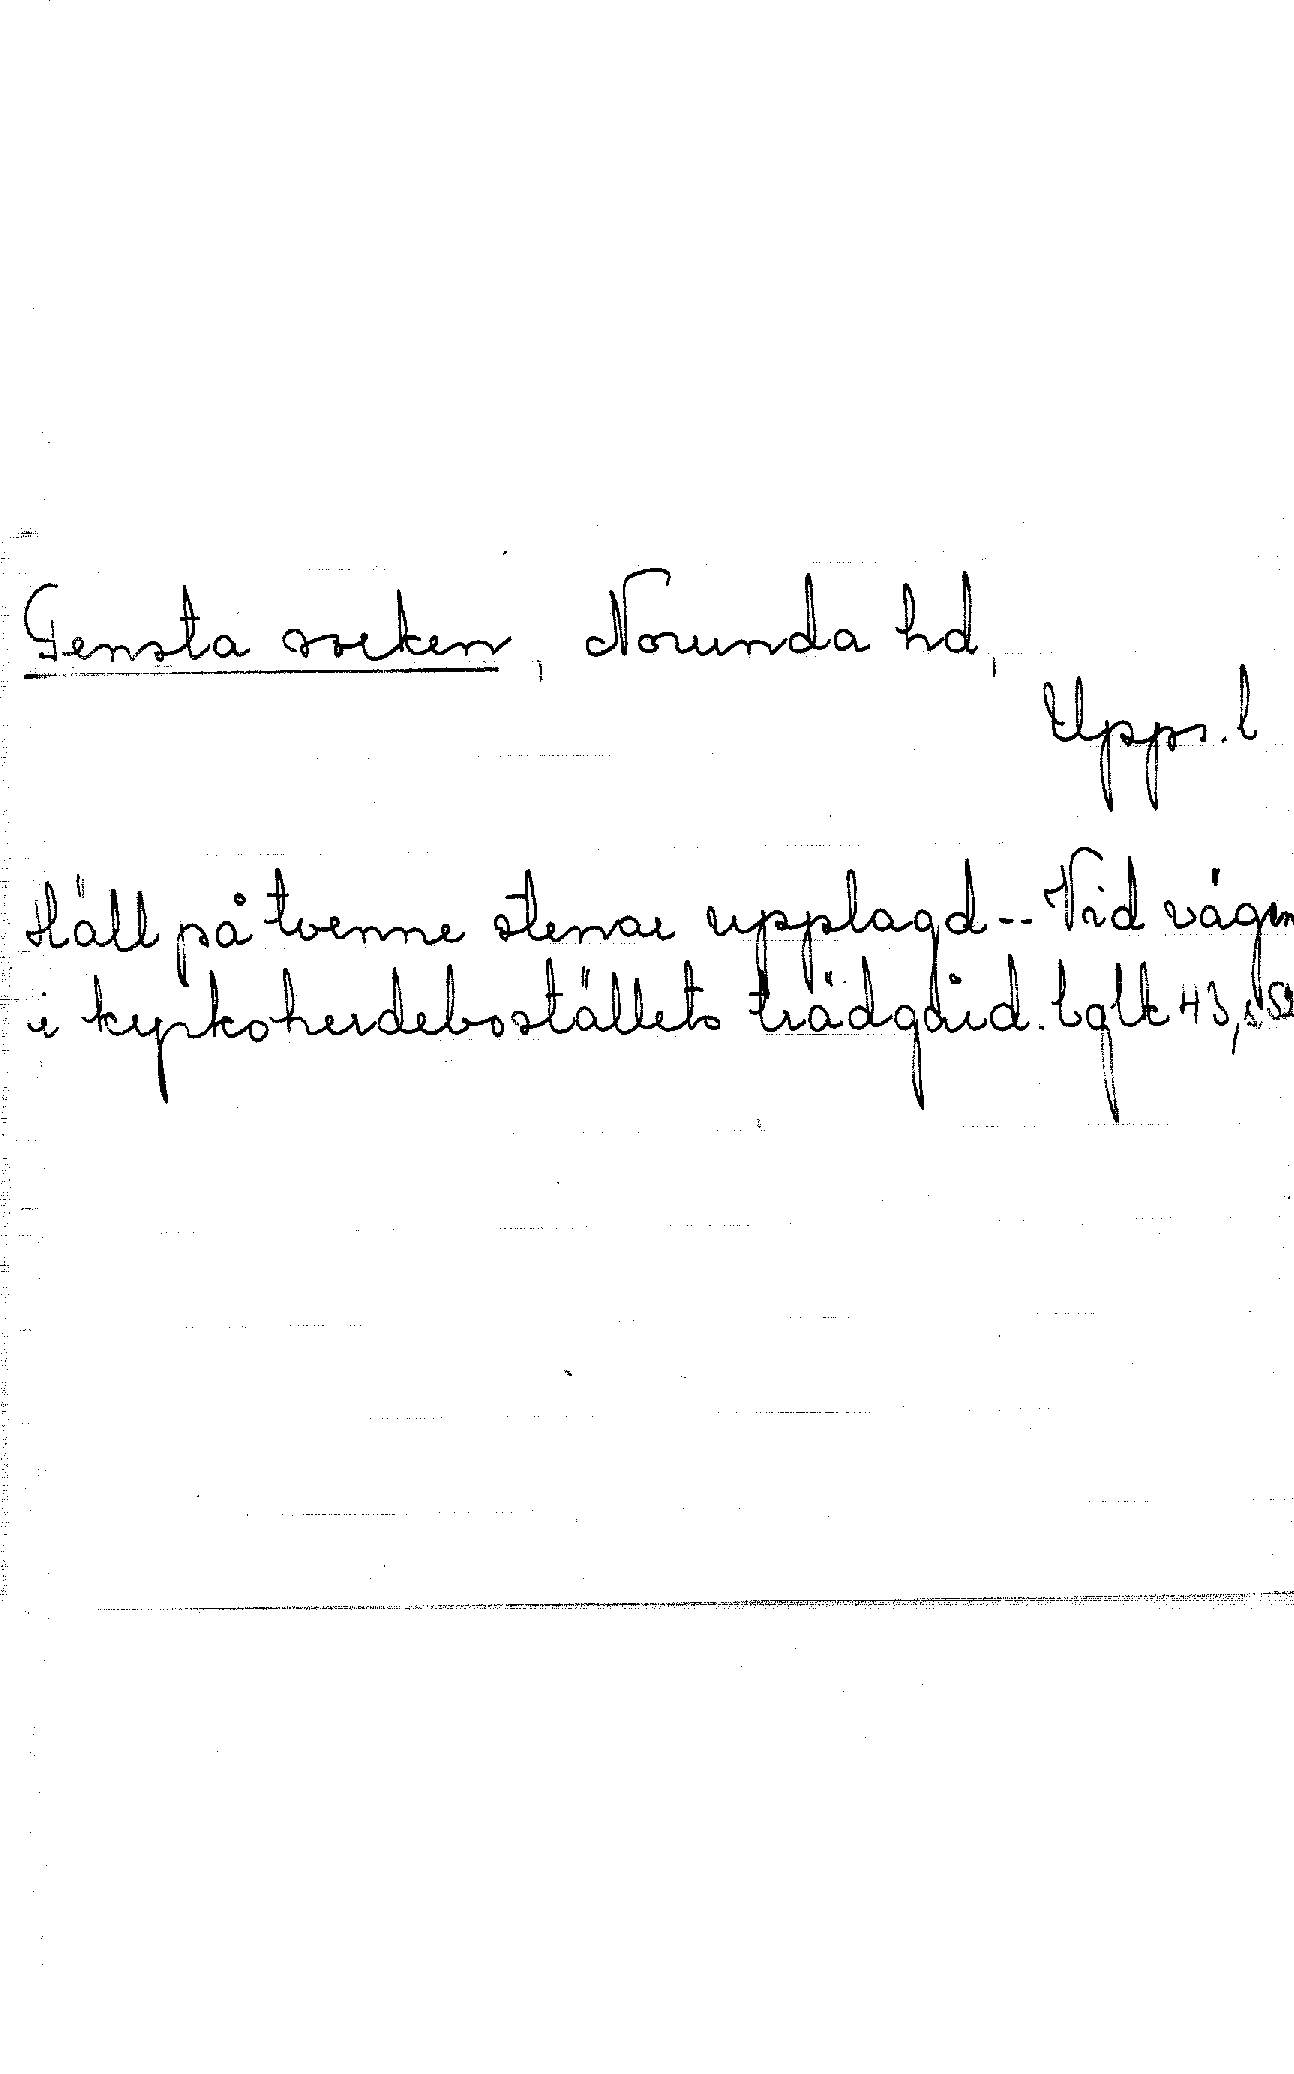 Tensta socken, Norunda hd,
Upps. l
Häll på tvenne stenar upplagd -- Vid vägen
i kyrkoherdeboställets trädgård. lglk 43, s